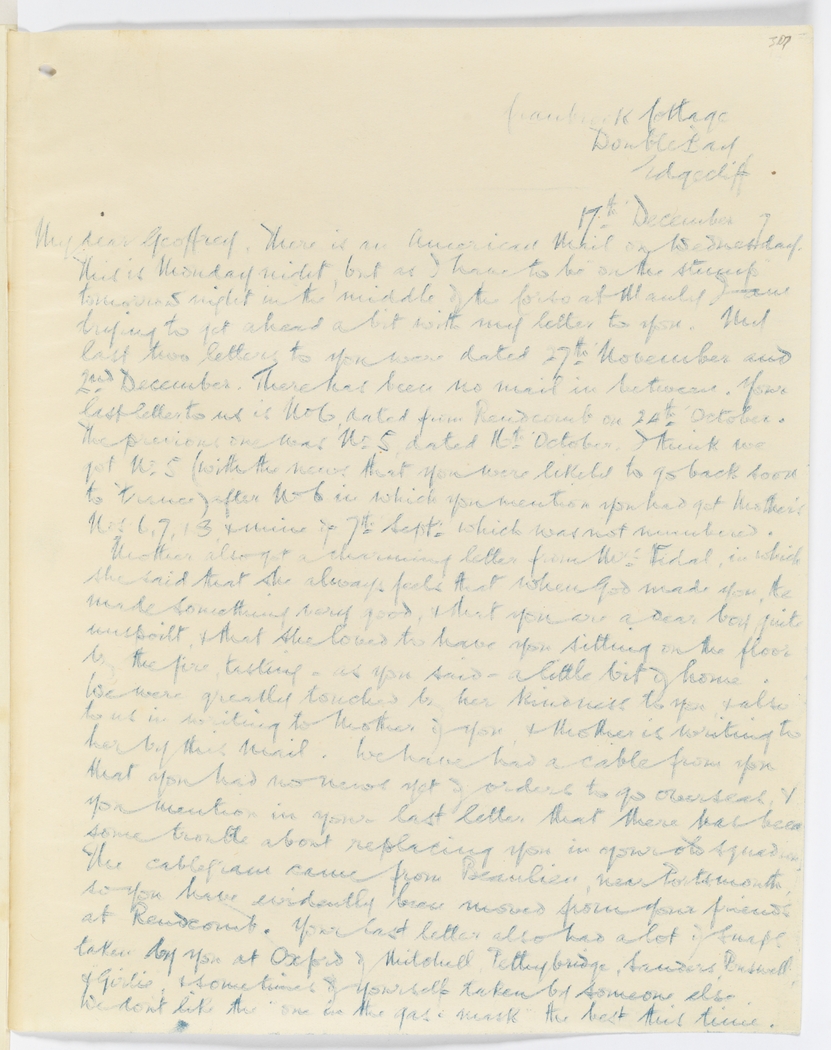 387
Cottage
Double Bay
Edgecliff
17th December 7
My dear Geoffrey. There is an American Mail on Wednesday.
This is Monday night, but as I have to be on the stump
tomorrow night in the middle of the at Manly I am
trying to get ahead a bit with my letter to you. My
last two letters to you were dated 27th November and
2nd December. There has been no mail in between. Your
last letter to us is No 6, dated from Rendcomb on 24th October.
The previous one was No 5, dated 16th October. I think we
got No 5 (with the news that you were likely to go back soon
to France) after No 6 in which you mention you had got Mother's
Nos 6, 7, & mine of 7th Sept. which was not numbered.
Mother also got a charming letter from Mrs Tidal, in which
she said that she always feels that when God made you, He
made something very good, & that you are a dear boy quite
unspoilt, & that she loved to have you sitting on the floor
by the fire, - as you said - a little bit of home.
We were greatly touched by her kindness to you & also
to us in writing to Mother of you, & Mother is writing to
her by this mail. We have had a cable from you
that you had no news yet of orders to go overseas, &
you mention in your last letter that there has been
some trouble about replacing you in your old squadron.
The cablegram came from Beaulieu, near Portsmouth,
so you have evidently been moved from your friends
at Rendcomb. Your last letter also had a lot of snaps
taken by you at Oxford of Mitchell, Pettybridge, Sanders,
& Girlie, & sometimes of yourself taken by someone else.
We don't like the one in the gas mask the best this time.